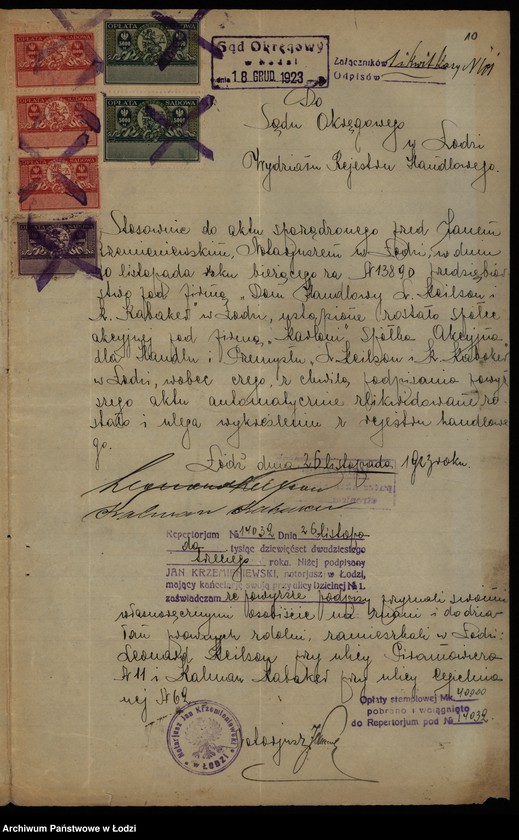 10
OPŁATA SĄDOWA
OPŁATA SĄDOWA
OPŁATA SĄDOWA
OPŁATA SĄDOWA
OPŁATA SĄDOWA
5000
5000
Sąd Okręgowy
w Łodzi
dnia 18. GRUD. 1923
Załączników 1 i kwit kasy N
Odpisów
Do
Sądu Okręgowego
w Łodzi
Wydziału Rejestru Handlowego.
Stosownie do aktu sporządzonego przed Janem
Krzemieniewskim, Notarjuszem w Łodzi, w dniu
listopada roku bieżącego za N13890 przedsiębior-
stwo pod firmą „Dom Handlowy L. Keilson i
K. Kabaker" w Łodzi, ustąpione zostało spółce
akcyjnej pod firmą „Spółka Akcyjna
dla Handlu i Przemysłu, L. Keilson i K. Kabaker"
w Łodzi, wobec czego, z chwilą podpisania powyż-
szego aktu automatycznie zlikwidowane zo-
stało i ulega wykreśleniu z rejestru handlowe-
go.
Łódź dnia 26 listopada 1923 roku.
Kalman Kabaker
Repertorjum № 14032 Dnia 26 listopa-
da tysiąc dziewięćset dwudziestego
trzeciego roku. Niżej podpisany
JAN KRZEMIENIEWSKI, notarjusz w Łodzi,
mający kancelarję swoją przy ulicy Dzielnej № 1.
zaświadczam, że powyższe podpisy przyznali swoimi
własnoręcznymi osobiście mi znani i do dzia-
łań prawnych zdolni, zamieszkali w Łodzi:
Leonard Keilson przy ulicy Piramowicza
N 11 i Kalman Kabaker przy ulicy Cegielnia-
nej N 62
Opłaty stemplowej Mk. 40000
pobrano i wciągnięto
do Repertorjum pod № 14032
Notarjusz Jan Krzemieniewski
w ŁODZI
Notarjusz
Archiwum Państwowe w Łodzi